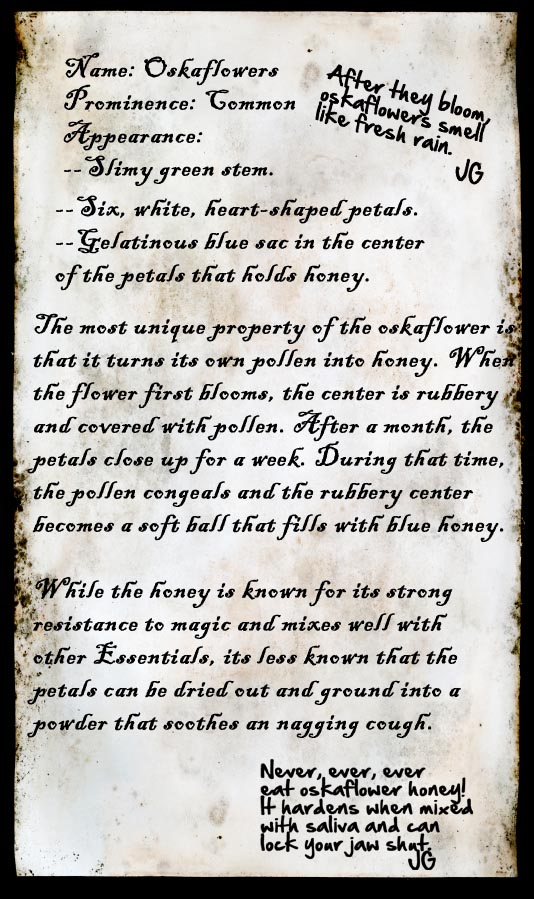 Name: Oskaflowers
Prominence: Common
Appearance:
-- Slimy green stem.
-- Six, white, heart-shaped petals.
-- Gelatinous blue sac in the center
of the petals that holds honey.
After they bloom,
oskaflowers smell
like fresh rain.
JG
The most unique property of the oskaflower is
that it turns its own pollen into honey. When
the flower first blooms, the center is rubbery
and covered with pollen. After a month, the
petals close up for a week. During that time,
the pollen congeals and the rubbery center
becomes a soft ball that fills with blue honey.
While the honey is known for its strong
resistance to magic and mixes well with
other Essentials, its less known that the
petals can be dried out and ground into a
powder that soothes an nagging cough.
Never, ever, ever
eat oskaflower honey!
It hardens when mixed
with saliva and can
lock your jaw shut.
JG